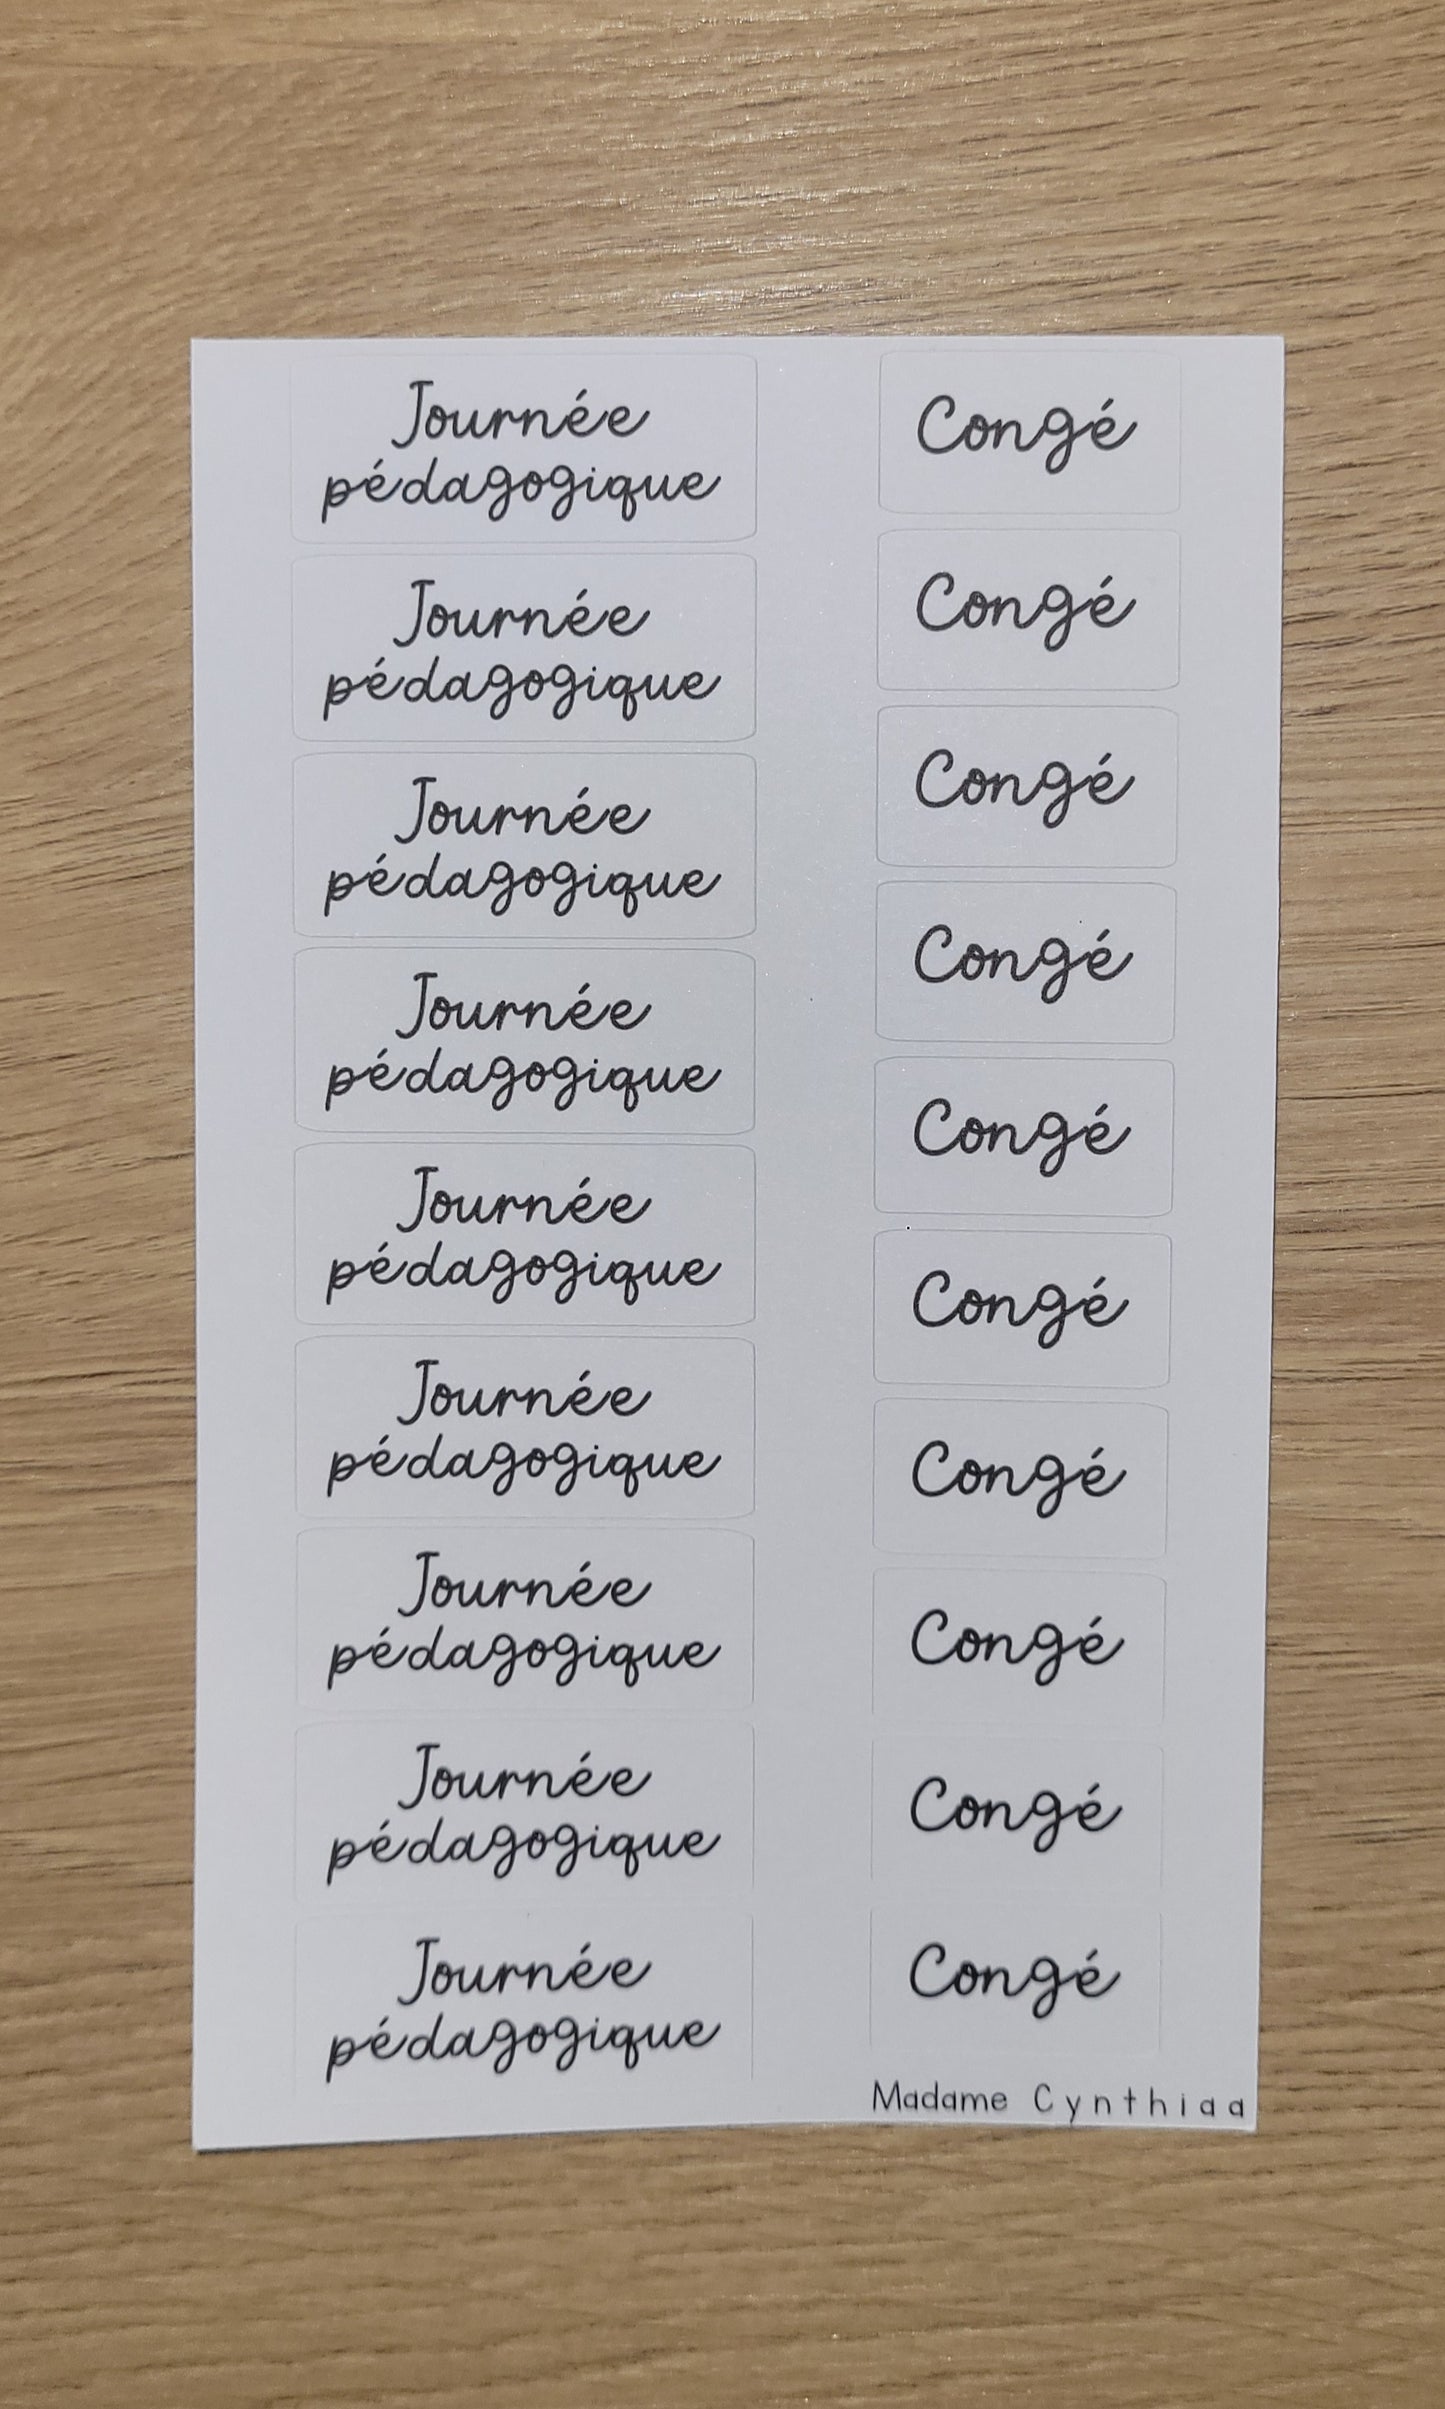 Journée
pédagogique
Journée
pédagogique
Journée
pédagogique
Journée
pédagogique
Journée
pédagogique
Journée
pédagogique
Journée
pédagogique
Journée
pédagogique
Journée
pédagogique
Congé
Congé
Congé
Congé
Congé
Congé
Congé
Congé
Congé
Congé
Madame Cynthiaa